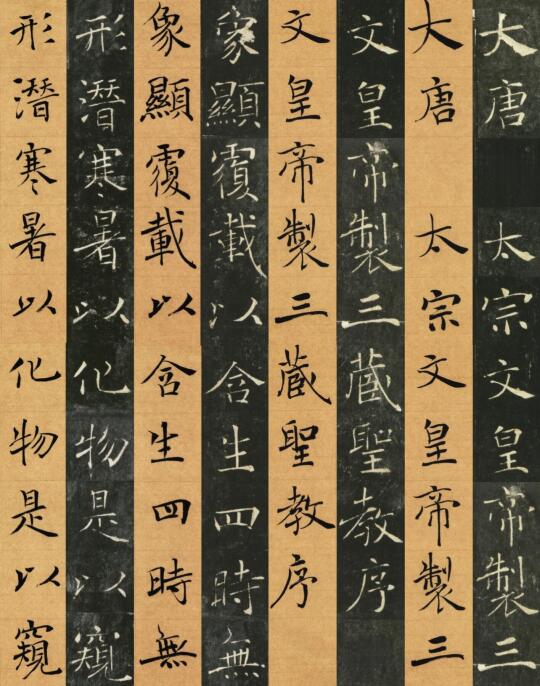 大唐 太宗文皇帝製三
大唐 太宗文皇帝製三
文皇帝製三藏聖教序
文皇帝製三藏聖教序
象顯覆載以含生四時無
象顯覆載以含生四時無
形潛寒暑以化物是以窺
形潛寒暑以化物是以窺